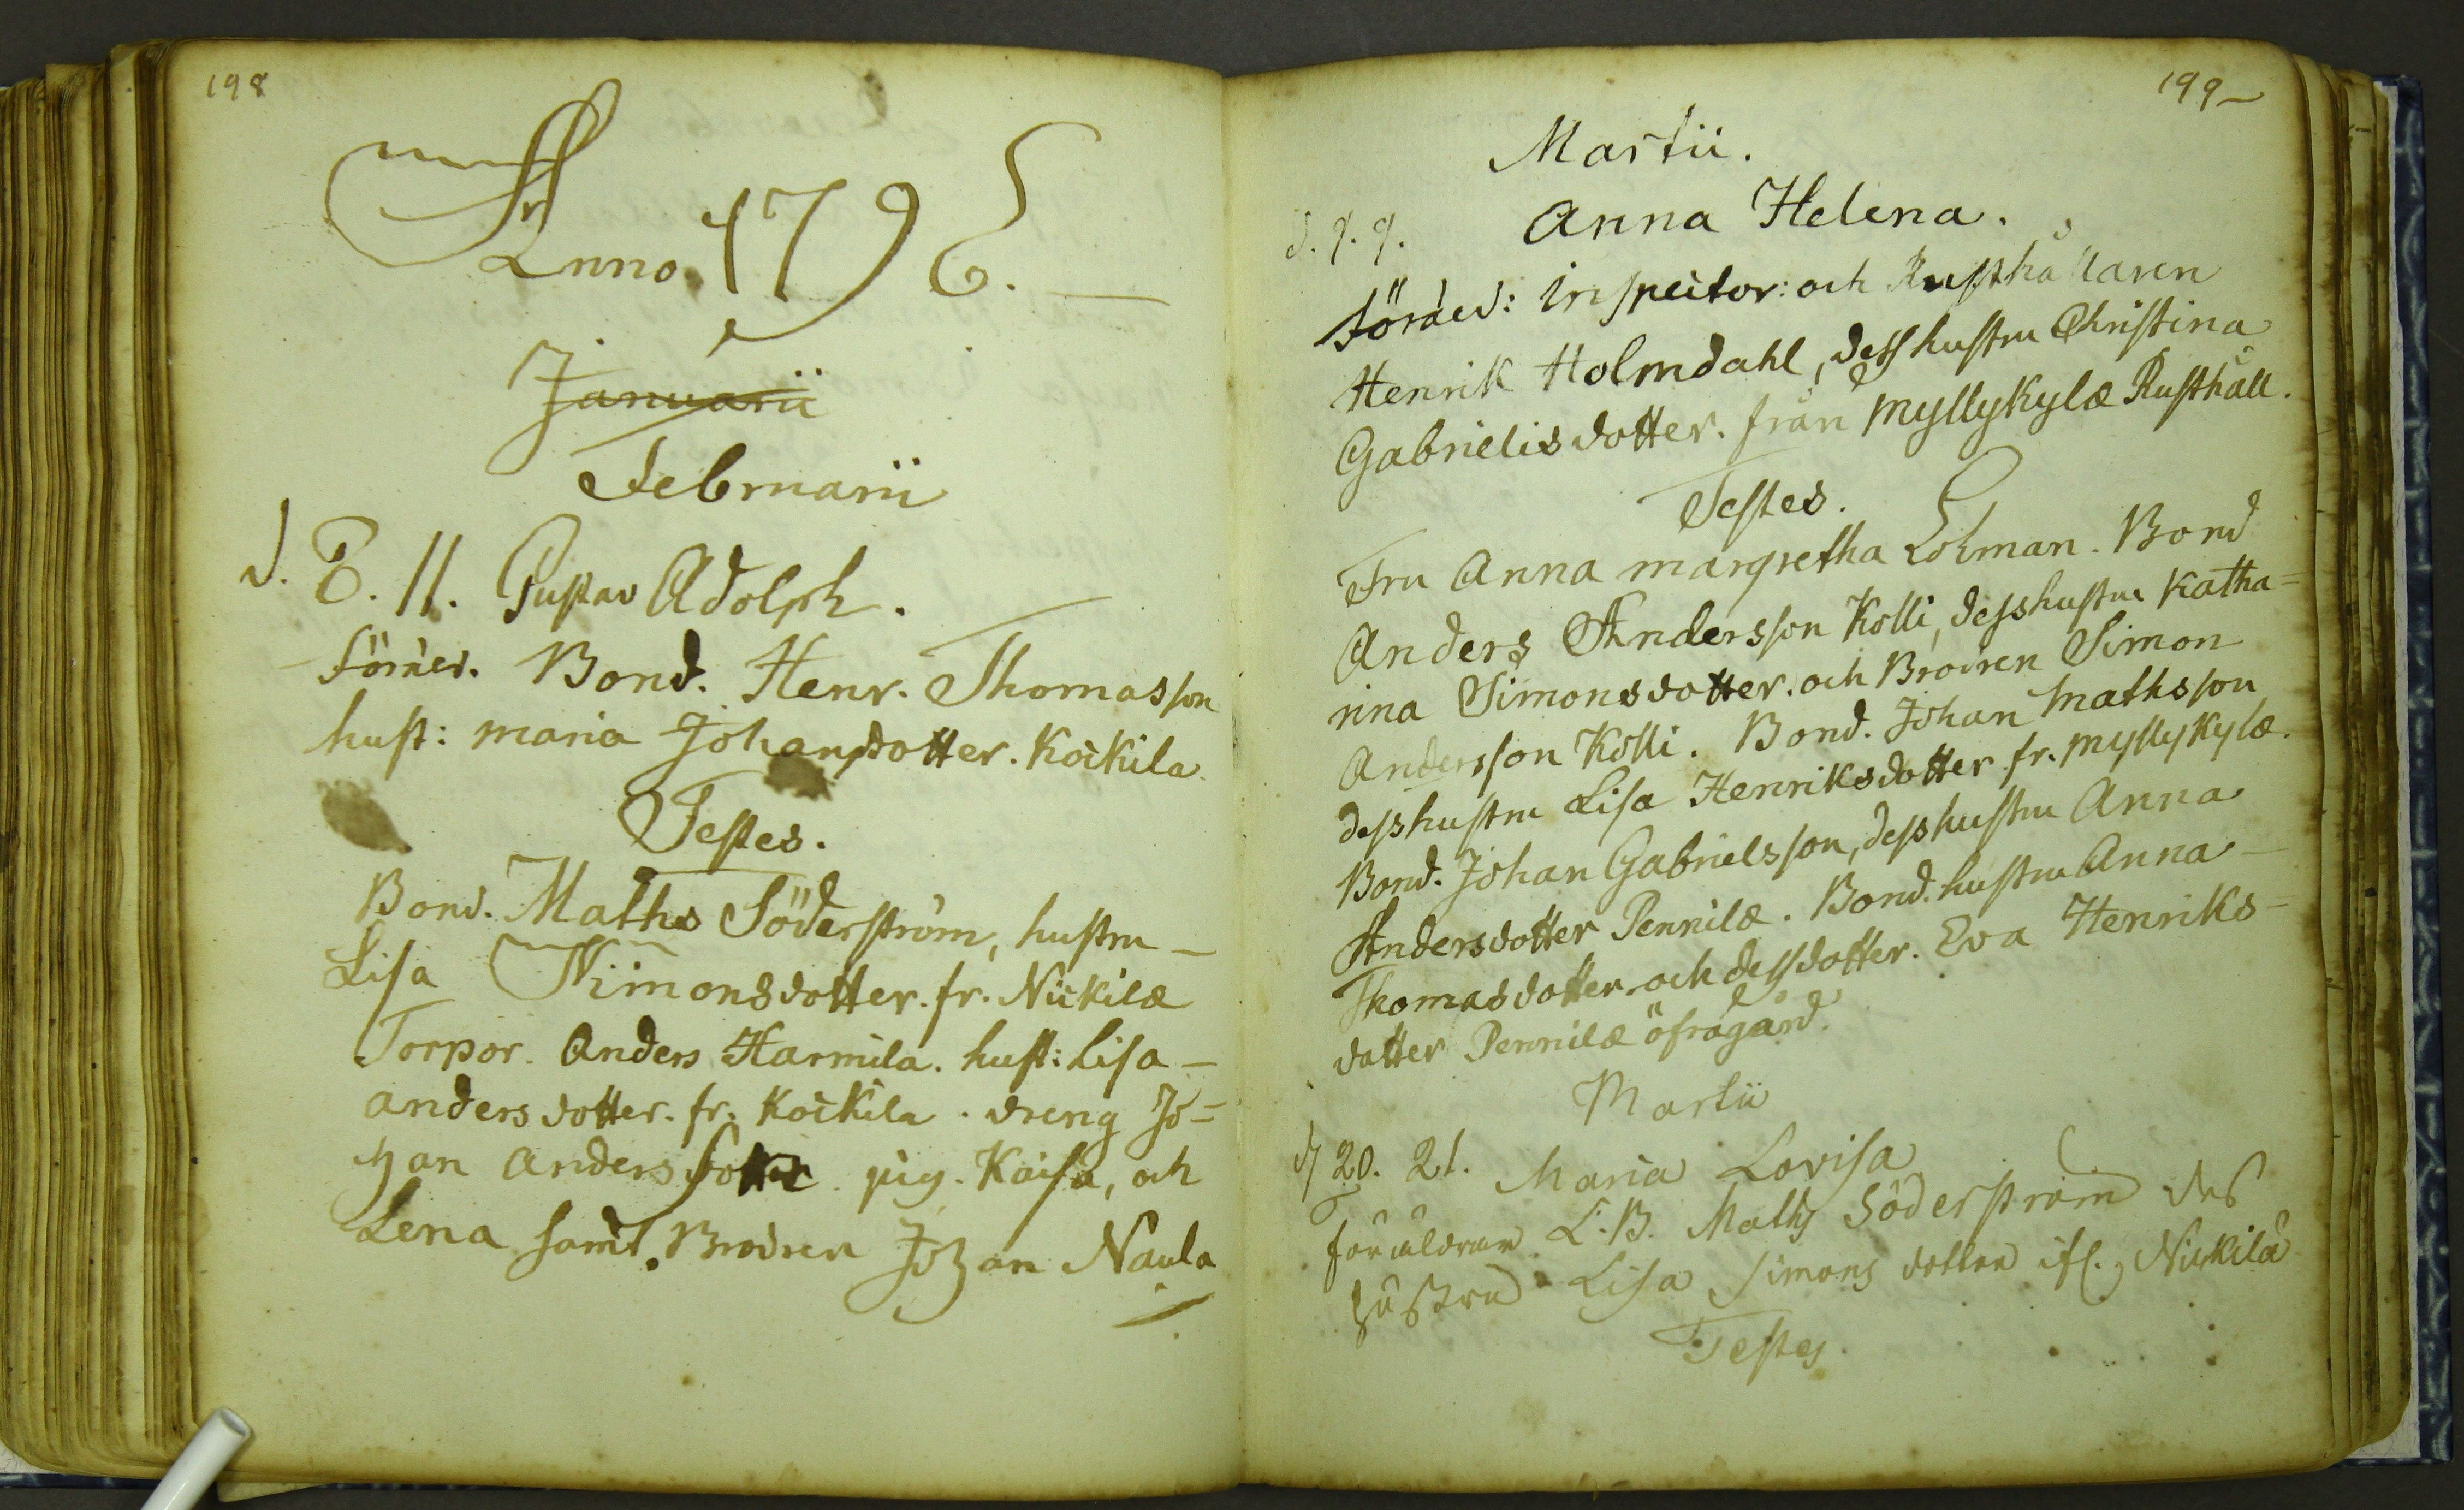 198
Anno 1796.
Januarii
Februarii
d. 8. 11. Gustav Adolph.
föräld. Bond. Henr. Thomasson
hust: maria Johansdotter. Koikila
Testes.
Bond. Maths Söderström, hustru
Lisa Simonsdotter. fr. Niikilæ
Torpar. Anders Harmila. hust: Lisa
anders dotter. fr. Koikila. dreng Jo=
han anders pig. Kaisa, och
Lena samt. Brodren Johan Naula
199
Martii.
d. 9. 9. Anna Helena.
föräld: inspector: och Rusthållaren
Henrik Holmdahl, dess hustru Christina
Gabrielis dotter. från Myllykylæ Rusthåll.
Testes.
Fru Anna margretha Lohman. Bond
Anders Andersson Kolli, dess hustru Katha=
rina Simonsdotter. och Brodren Simon
Andersson Kolli. Bond. Johan Mathsson
dess hustru Lisa Henriksdotter fr. Myllykylæ.
Bond. Johan Gabrielsson, dess hustru Anna
Andersdotter Pennilæ. Bond. hustru Anna
Thomasdotter och dess dotter. Eva Henriks-
dotter Pennilæ öfragård.
Martii
d 20. 21. Maria Lovisa
föräldrar L.B. Maths Söderström des
hustru Lisa Simons dotter ifr. Niikilä
Testes.